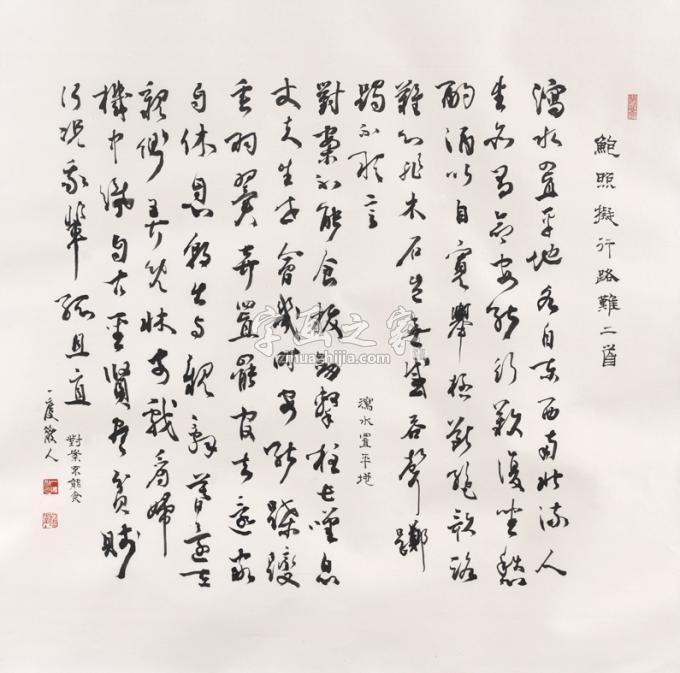 鮑照擬行路難二首
瀉水置平地各自東西南北流人
生亦有命安能行歎復坐愁
酌酒以自寬舉杯斷絕歌路
難心非木石豈無感吞聲躑
躅不敢言
瀉水置平地
對案不能食拔劍擊柱長嘆息
丈夫生世會幾時安能蹀躞
垂羽翼棄置罷官去還家
自休息朝出與親辭暮還在
親側弄兒床前戲看婦
機中織自古聖賢盡貧賤
何況我輩孤且直
對案不能食
字画之家
zihuashijia.com